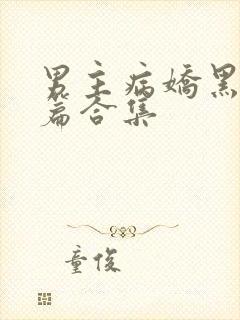 男主病嬌黑
篇合集
童俊